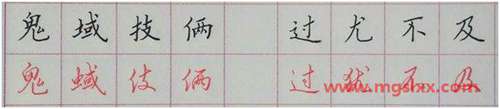 鬼域技俩 过尤不及
鬼蜮伎俩 过犹不及
www.mgshxx.com